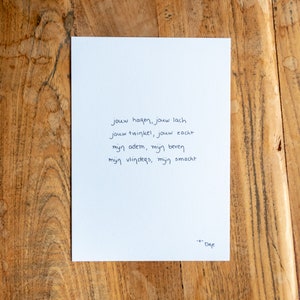 jouw haren, jouw lach
jouw twinkel, jouw zacht
mijn adem, mijn beren
mijn vlinders, mijn smacht